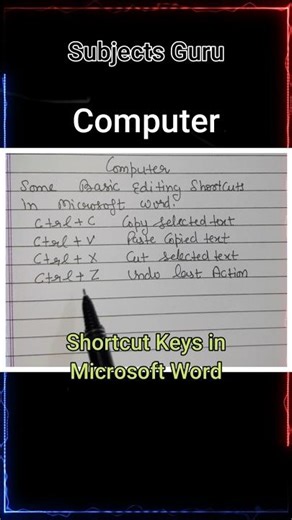 Subjects Guru
Computer
Computer
Some Basic Editing Shortcuts
In Microsoft Word.
Ctrl + C Copy selected text
Ctrl + V Paste Copied text
Ctrl + X Cut selected text
Ctrl + Z Undo last Action
Shortcut Keys in
Microsoft Word